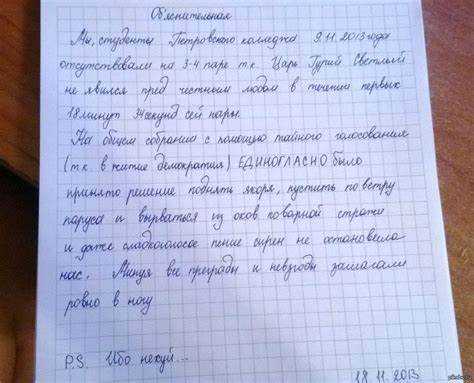 Объяснительная
Мы, студенты Петровского колледжа 9.11.2013 года
отсутствовали на 3-4 паре т.к. Царь Гурий Светлый
не явился пред честным людом в течении первых
18 минут 34 секунд сей пары.
На общем собрании с помощью тайного голосования
(т.к. в житие демократия) ЕДИНОГЛАСНО было
принято решение поднять якоря, пустить по ветру
паруса и вырваться из оков коварной стражи
и даже сладкоголосое пение сирен не остановило
нас. Минуя все преграды и невзгоды зашагали
ровно в ногу
P.S. Ибо нехуй...
18.11.2013